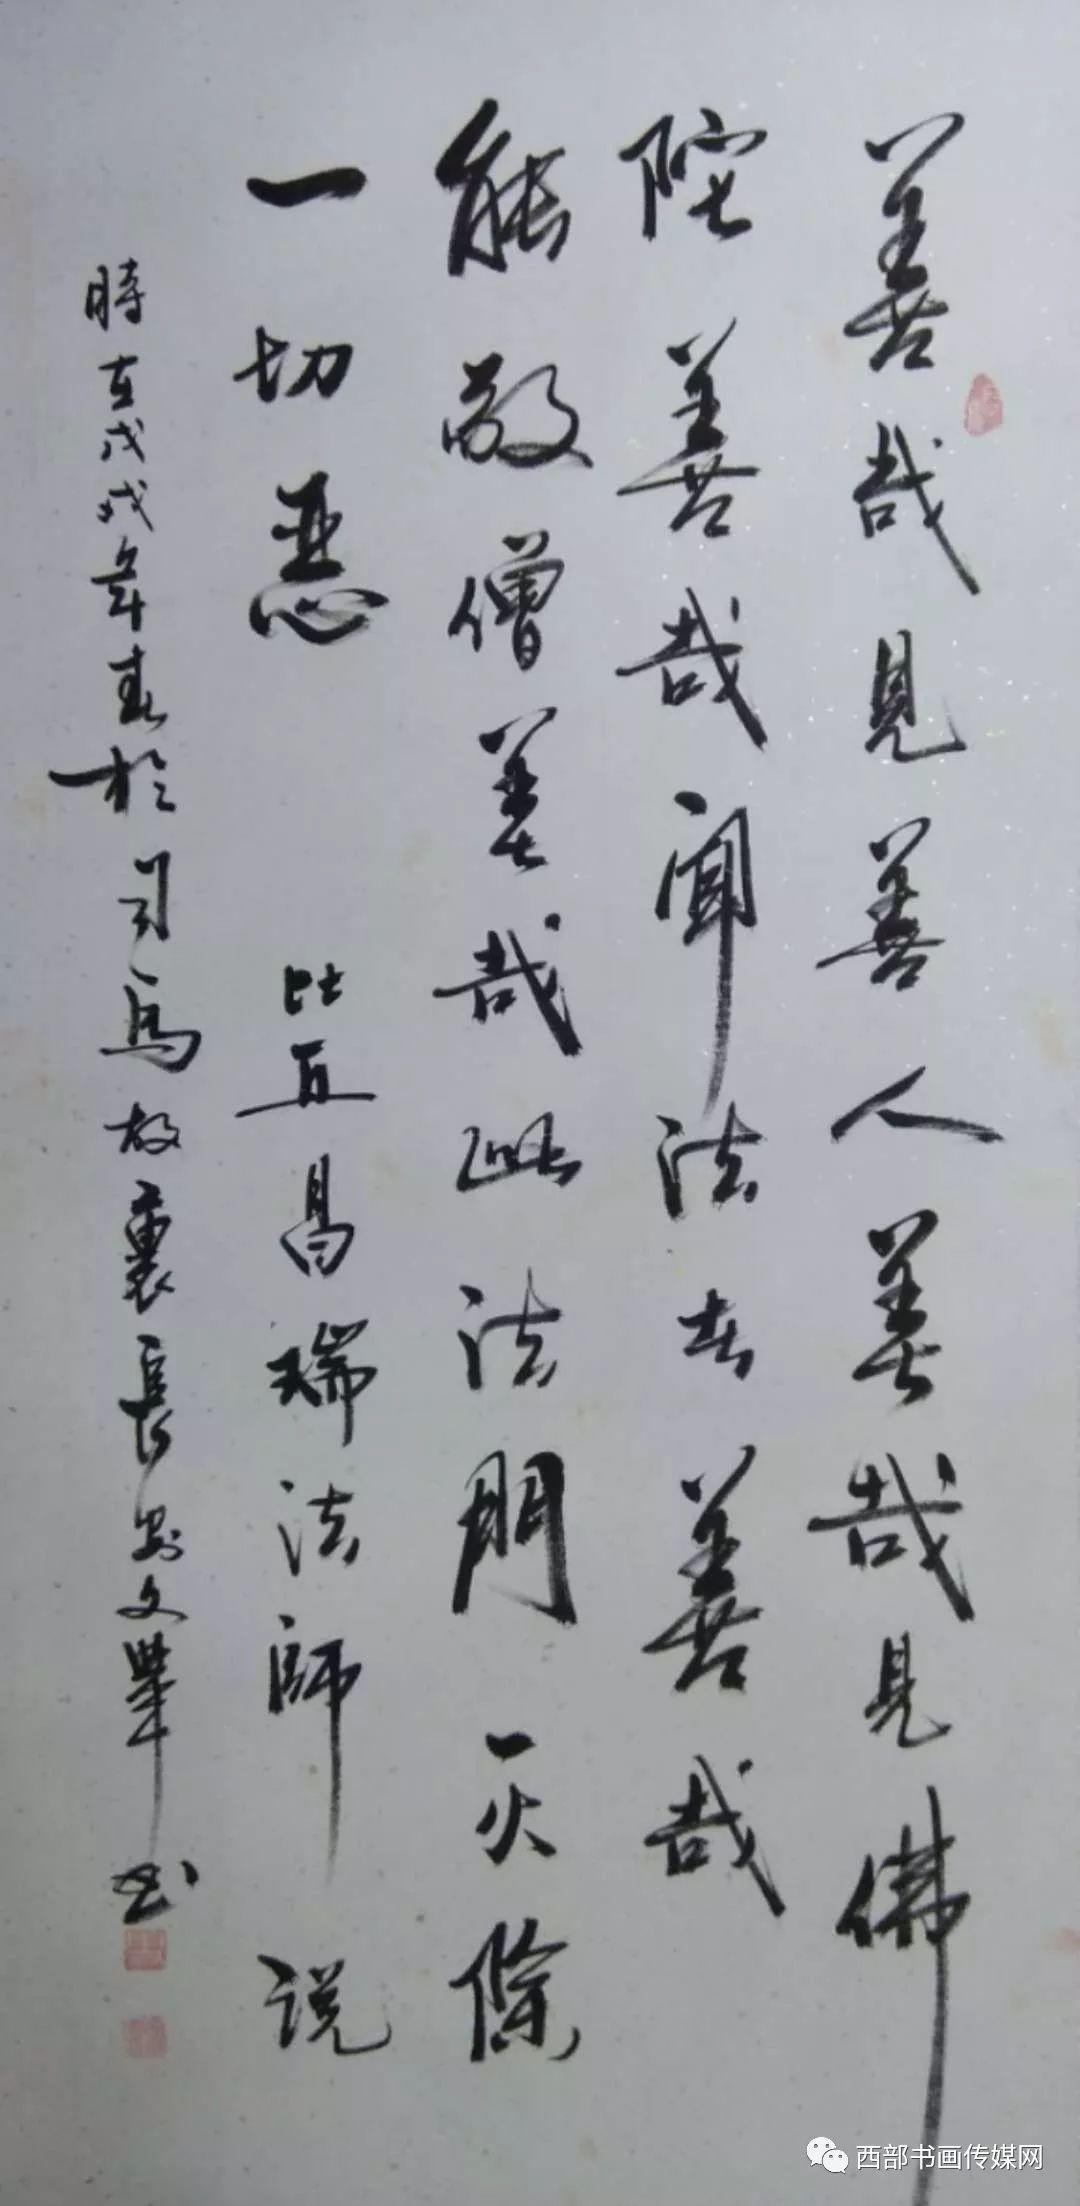 善哉見善人善哉見佛
陀善哉聞法去善哉
能敬僧善哉此法門灭除
一切恶 比丘昌瑞法师说
時在戊戌年春於司馬故裏長安文華书
西部书画传媒网